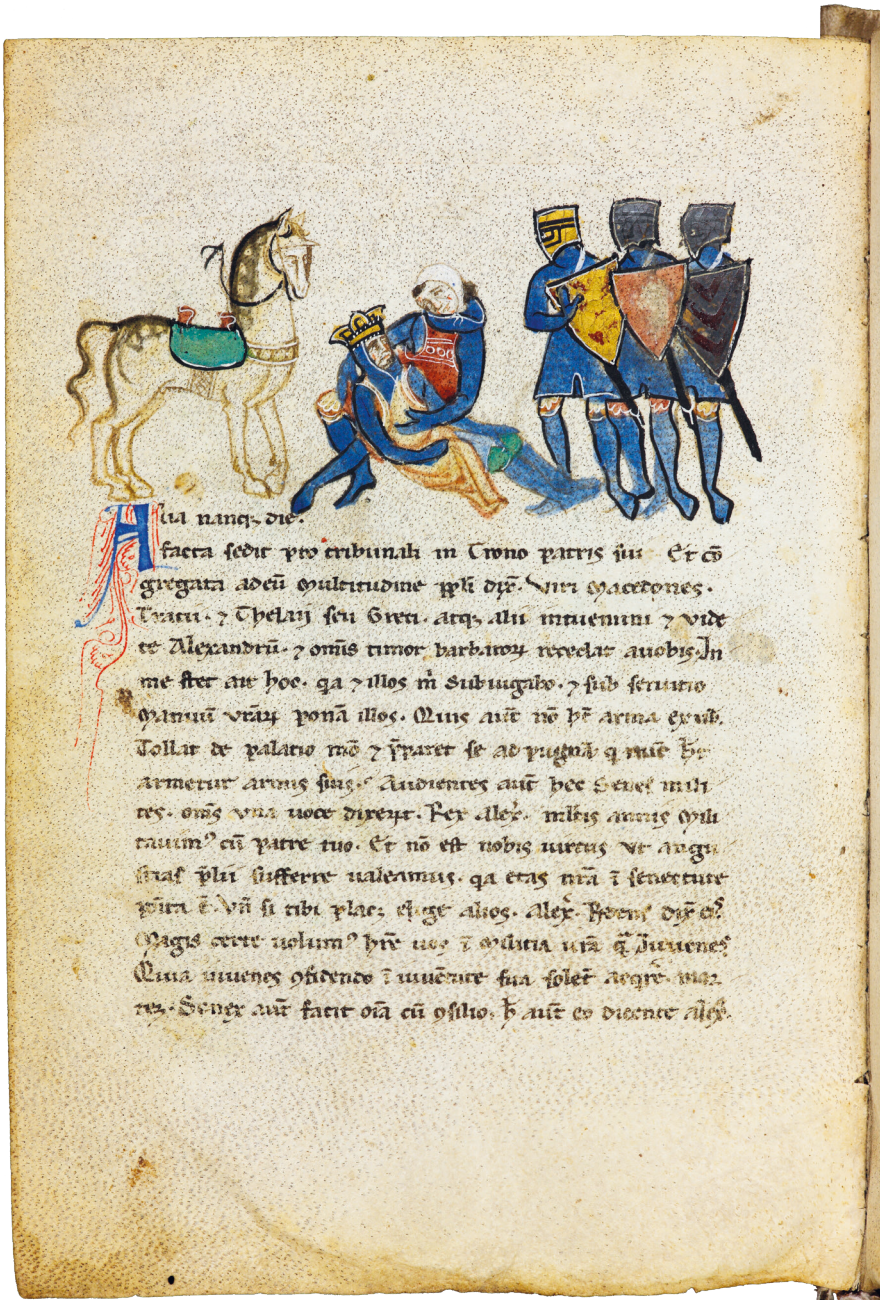 Alia nanq; die.
facta sedit pro tribunali in Trono patris sui Et cō
gregata ad eū Multitudine ppli dix̄. Viri Macedones.
Traci. ⁊ Thelaij seu Greci. atq; alii intuemini ⁊ vide
te Alexandrū. ⁊ om̄is timor barbaroꝝ recedat auobis. In
me stet air hoc. qa ⁊ illos m̄ Subiugabo. ⁊ sub seruitio
Manuū vr̄aꝝ ponā illos. Quis aūt nō h̄t arma
Tollat de palatio meo ⁊ p̄paret se ad pugnā q
armetur armis suis. Audientes aūt hec Senes mili
tes. om̄s vna uoce dixerūt. Rex Alex̄. mltis annis Mili
tauimꝰ cū patre tuo. Et nō est nobis uirtus vt angu
stias p̄lii sufferre ualeamus. qa etas nr̄a ī senectute
posita ē. Vn̄ si tibi placꝫ elige alios. Alex̄. Rex dix̄ eis
Magis certe uolumꝰ h̄re uos ī Militia ur̄a q̄ Juuenes
Quia iuuenes ꝯfidendo ī iuuētute sua solēt acqre mor
teꝫ. Senex aūt facit oīa cū ꝯsilio. h̄ aūt eo dicente Alex̄.